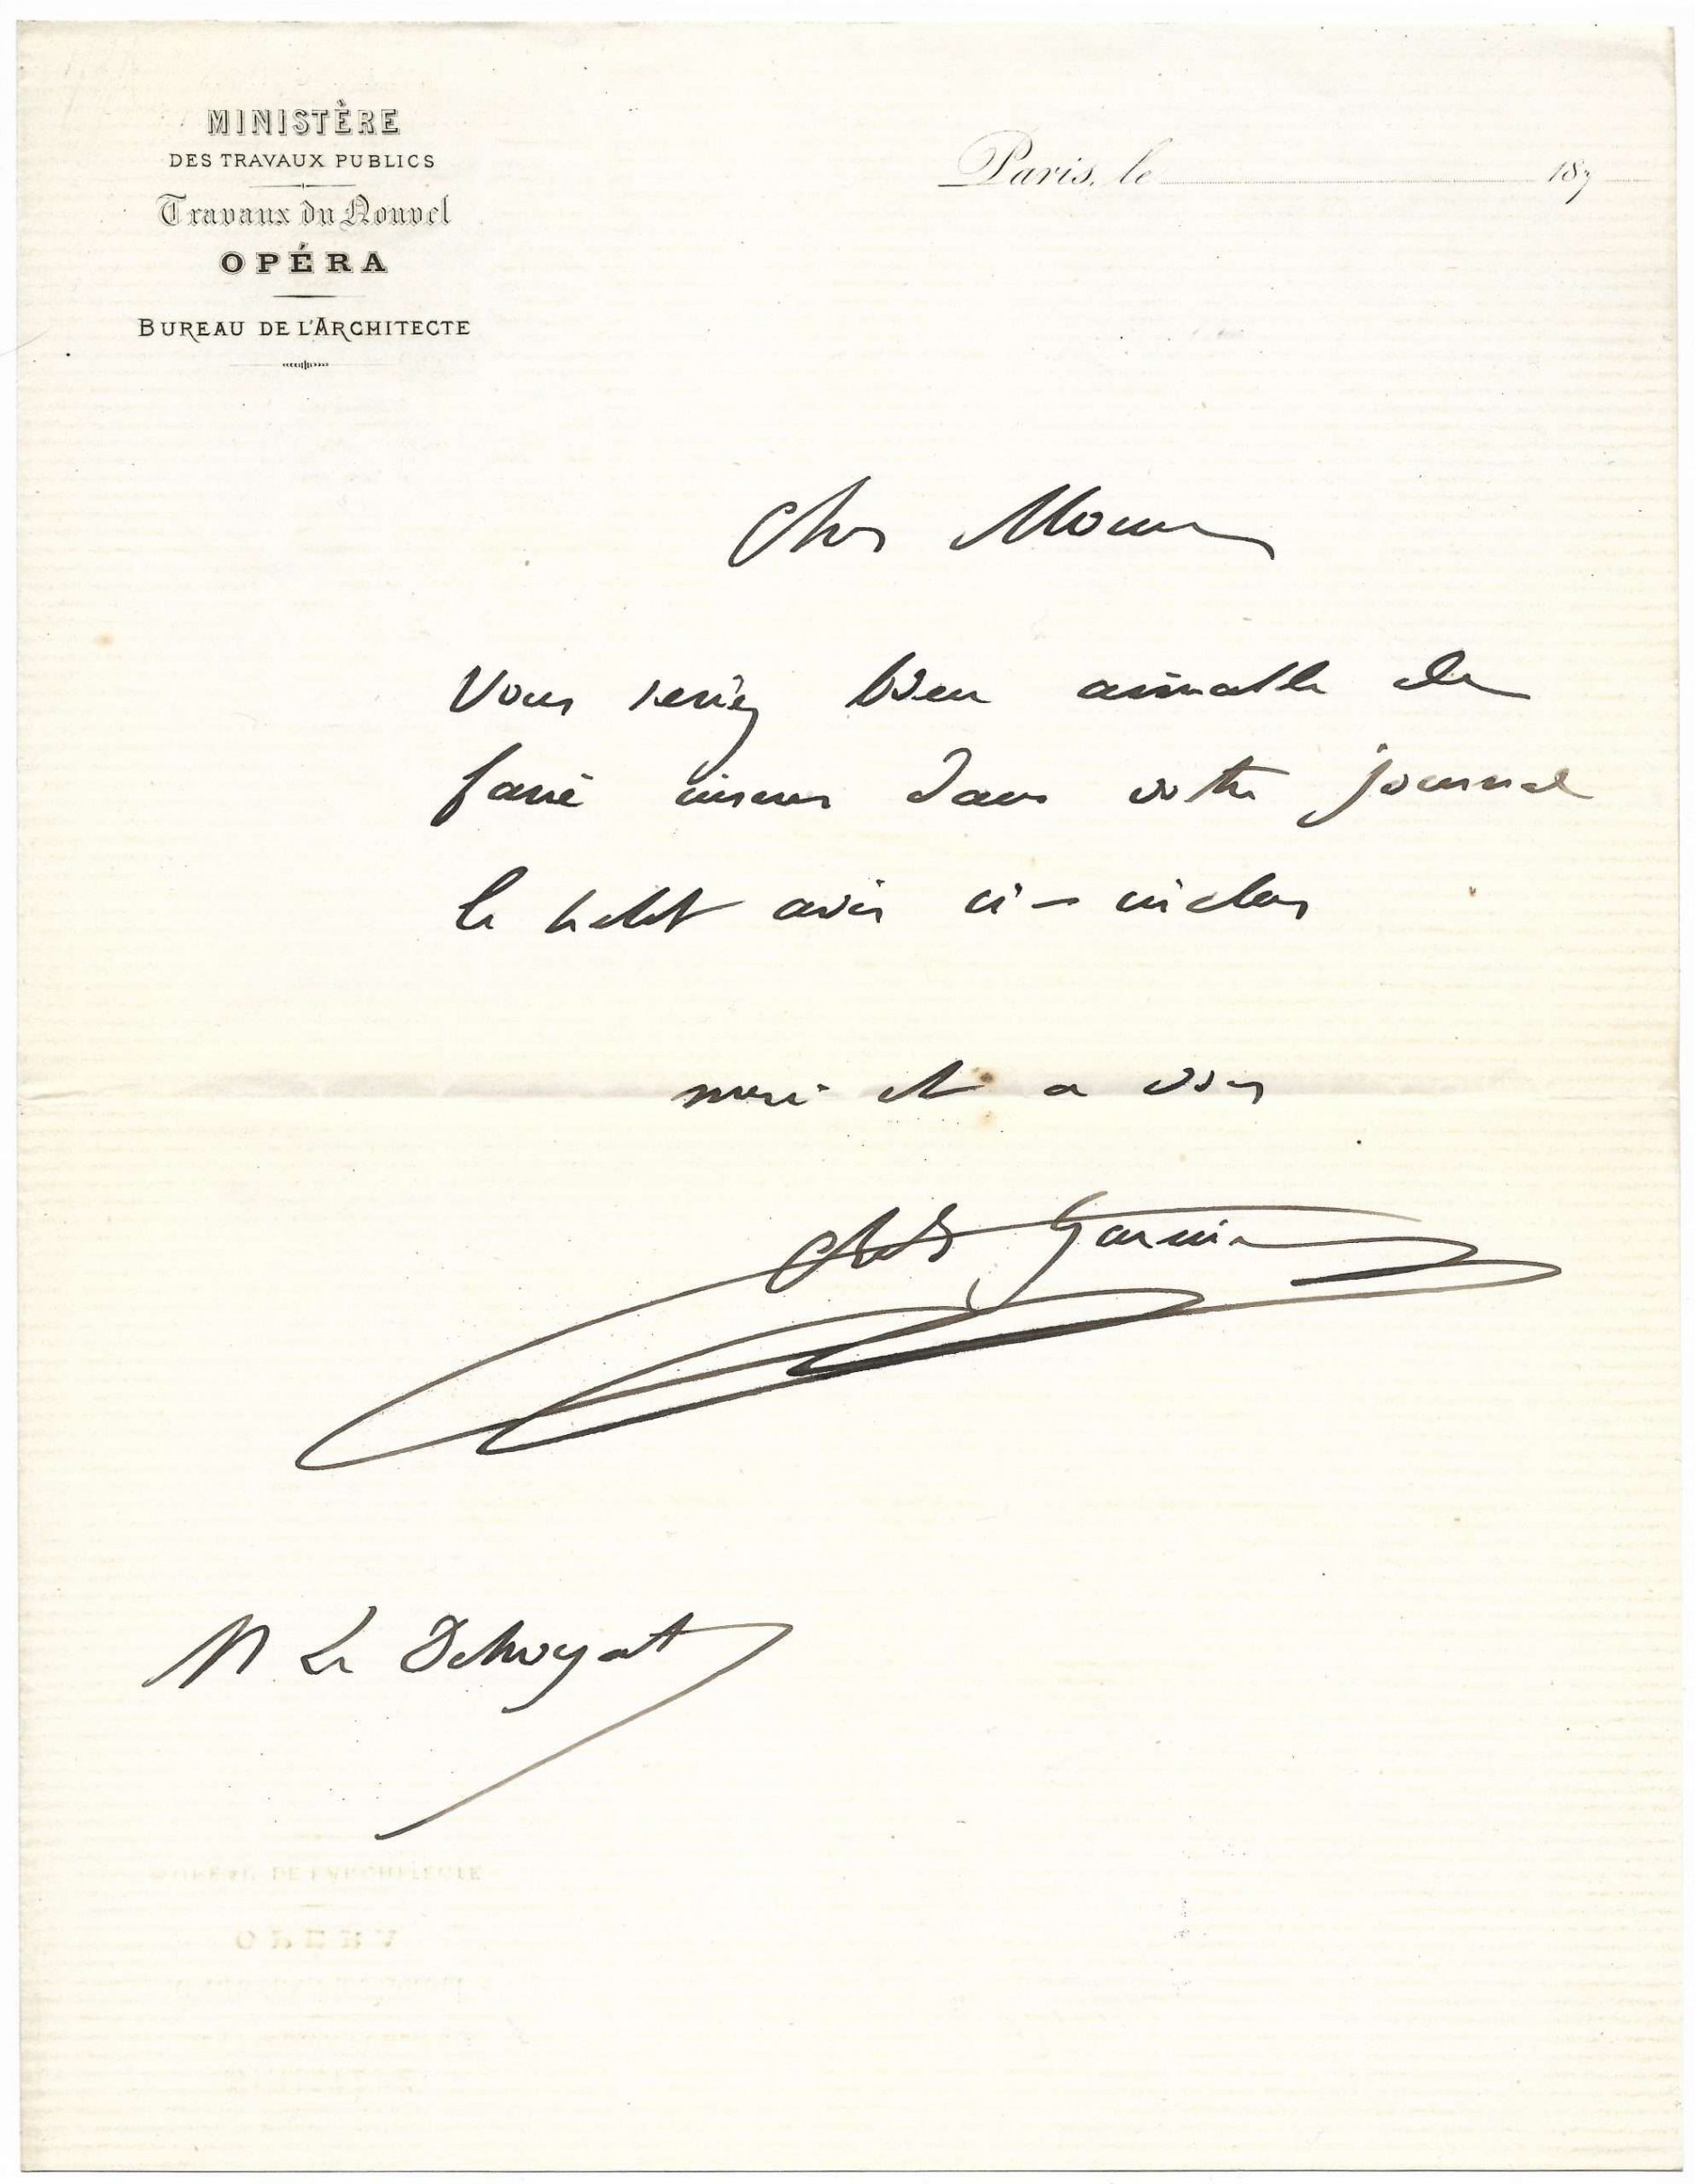 MINISTÈRE
DES TRAVAUX PUBLICS
Travaux du Nouvel
OPÉRA
BUREAU DE L'ARCHITECTE
Paris, le 187
Cher Monsieur
Vous seriez bien aimable de
faire insérer dans votre journal
le petit avis ci-inclus
merci et a vous
Ch Garnier
M Le